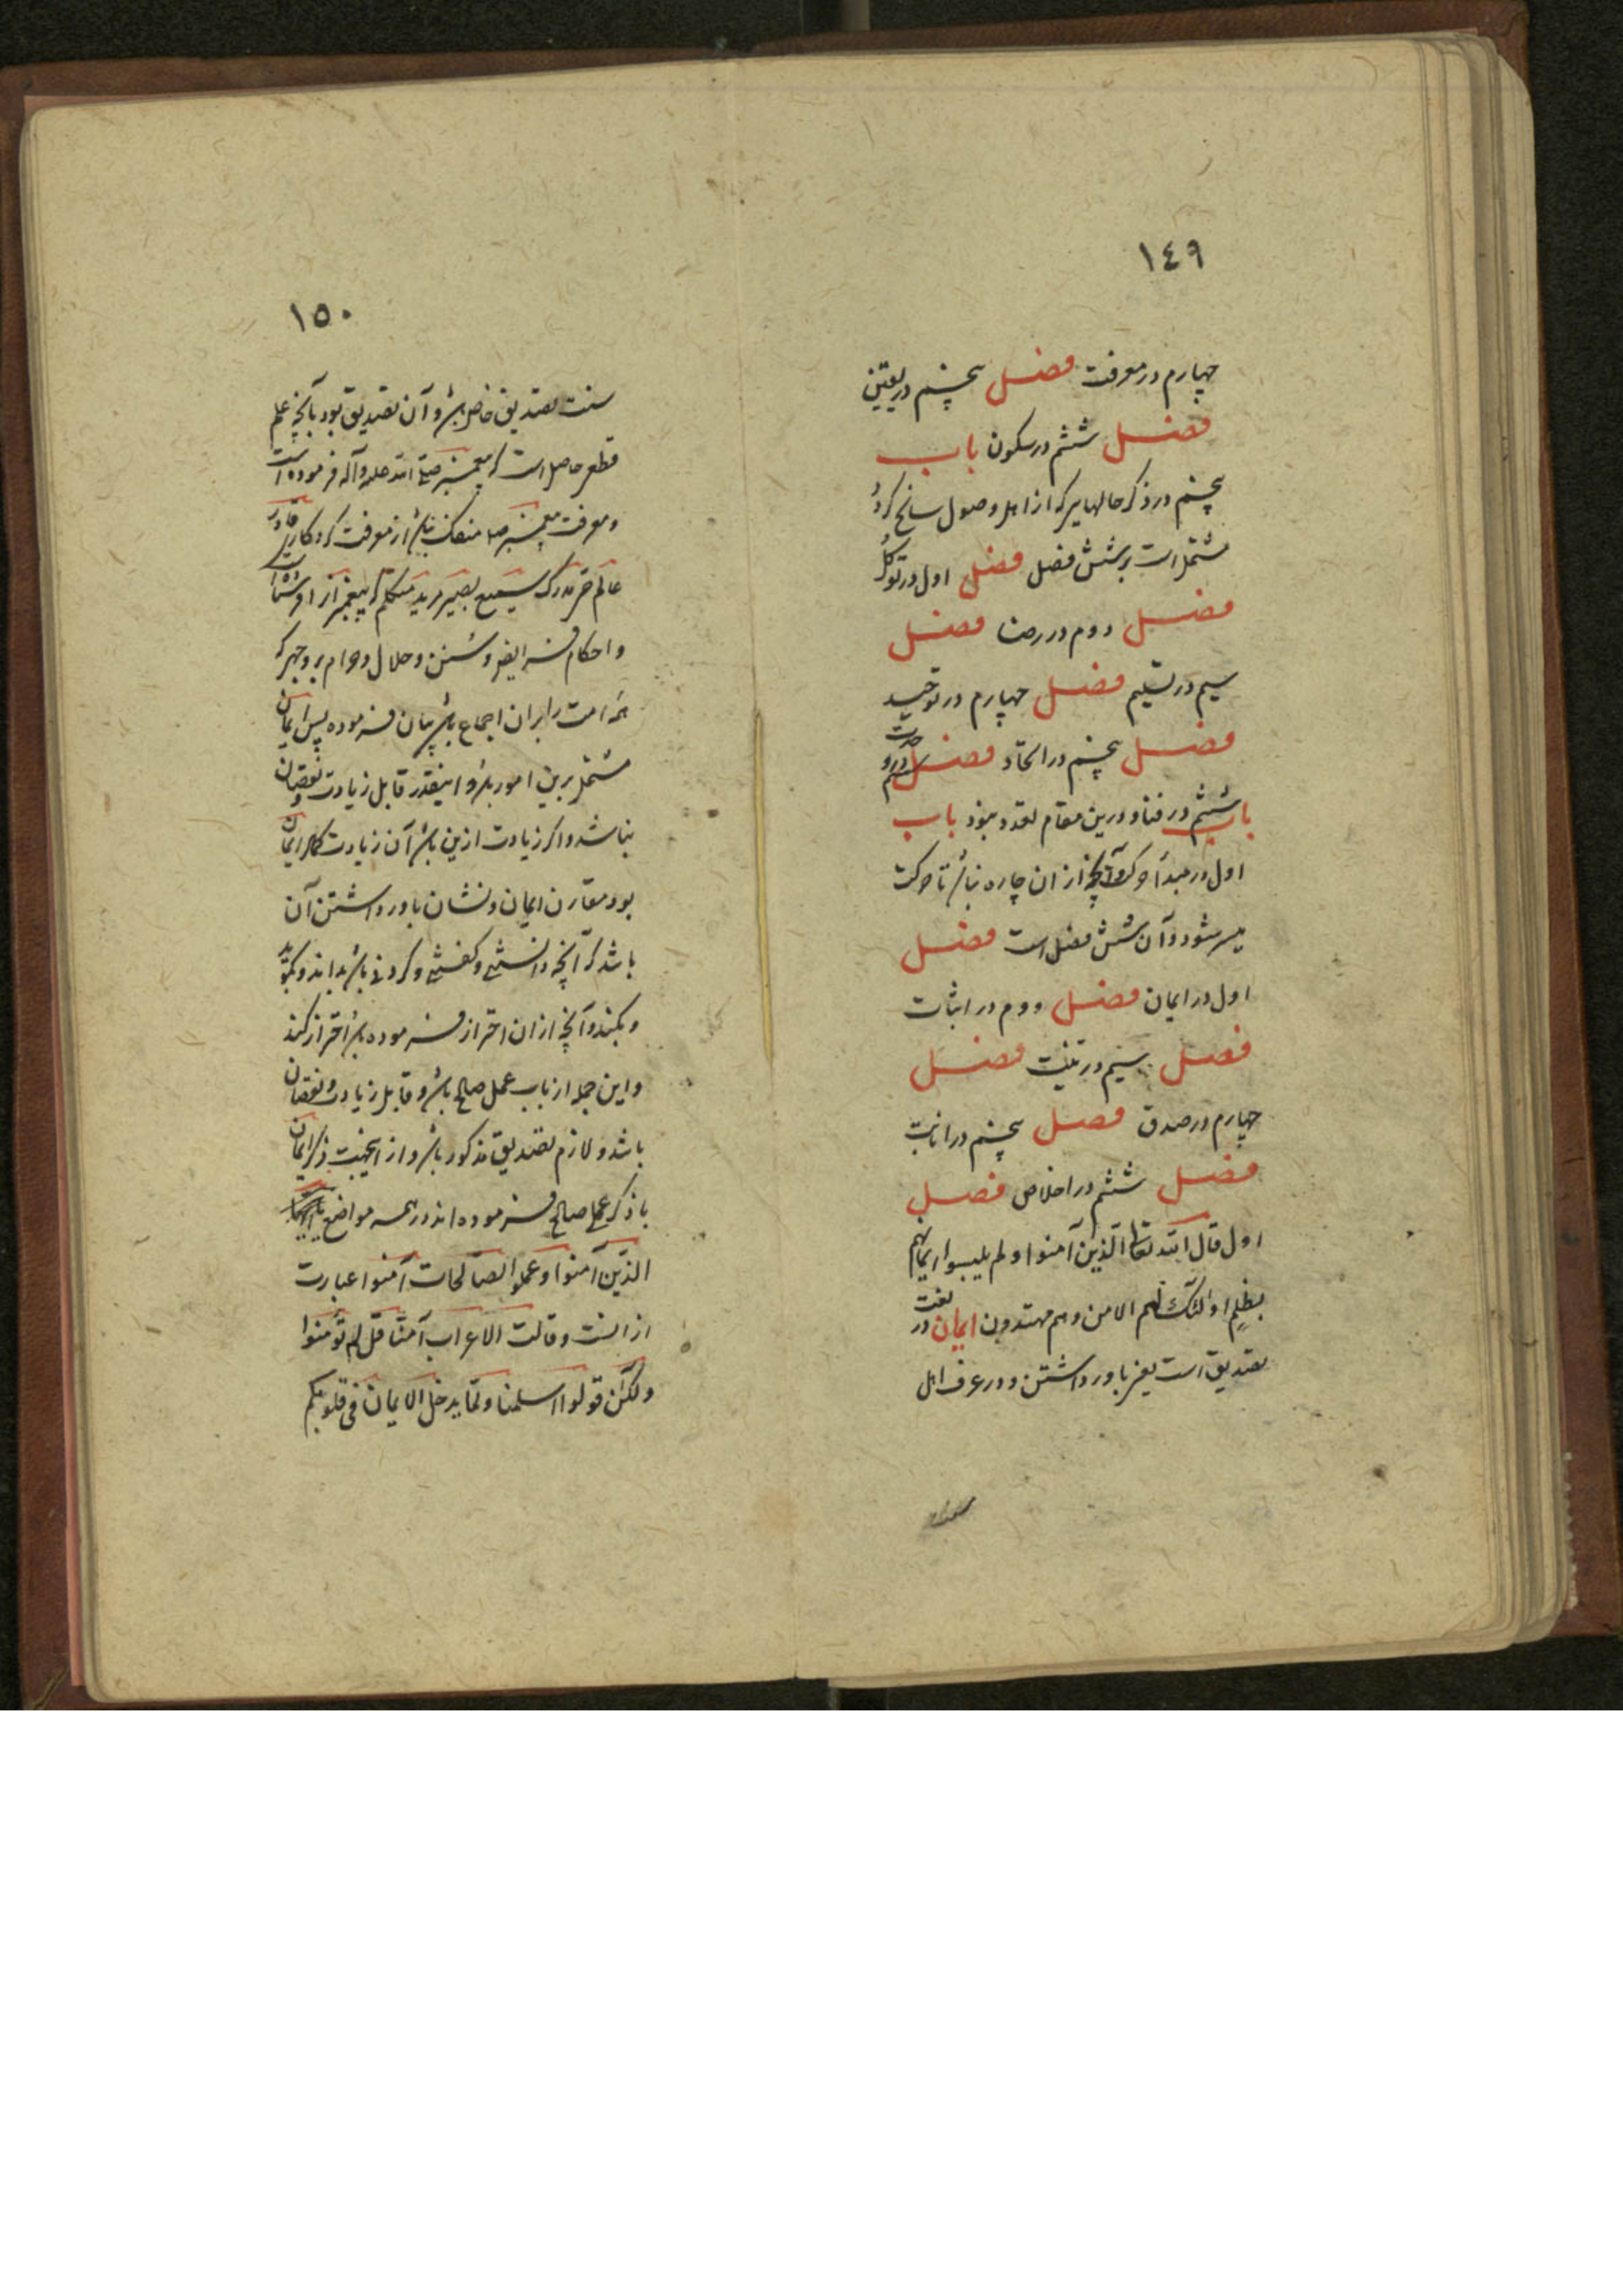 ١٤٩
چهارم در معرفت فصل پنجم در یقین
فصل ششم در سکون باب
پنجم در ذکر حالهایی که از اهل وصول سانح گردد
مشتمل است بر شش فصل فصل اول در توکل
فصل دوم در رضا فصل
سیم در تسلیم فصل چهارم در توحید
فصل پنجم در اتحاد فصل ششم در وحدت
باب ششم در فنا و درین مقام تعدد نبود باب
اول در مبدأ حرکت و آنچه از ان چاره نباشد تا حرکت
میسر شود و آن شش فصل است فصل
اول در ایمان فصل دوم در اثبات
فصل سیم در نیت فصل
چهارم در صدق فصل پنجم در انابت
فصل ششم در اخلاص فصل
اول قال الله تعالی الذین آمنوا ولم یلبسوا ایمانهم
بظلم اولئک لهم الامن وهم مهتدون ایمان در لغت
تصدیق است یعنی باور داشتن و در عرف اهل
١٥٠
سنت تصدیق خاص باشد و آن تصدیق بود بآنچه علم
قطعی حاصل است که پیغمبر صلی الله علیه وآله فرموده است
و معرفت پیغمبر منفک نباشد از معرفت کردکار قادر
عالم حی مدرک سمیع بصیر مرید متکلم که پیغمبر را فرستاده است
و احکام فرایض و سنن و حلال و حرام بر وجهی که
همه امت را بران اجماع باشد بیان فرموده پس ایمان
مشتمل برین امور باشد و اینقدر قابل زیادت و نقصان
نباشد و اگر زیادت ازین باشد آن زیادت کمال ایمان
بود مقارن ایمان و نشان باور داشتن آن
باشد که آنچه دانستنی و گفتنی و کردنی باشد بداند و بگوید
و بکند و آنچه از ان احتراز فرموده باشد احتراز کند
و این جمله از باب عمل صالح باشد و قابل زیادت و نقصان
باشد و لازم تصدیق مذکور باشد و از اینجهت ذکر ایمان
با ذکر عمل صالح فرموده اند در همه مواضع یا ایها
الذین آمنوا وعملوا الصالحات آمنوا عبارت
از انست وقالت الاعراب آمنا قل لم تؤمنوا
ولکن قولوا اسلمنا ولما یدخل الایمان فی قلوبکم